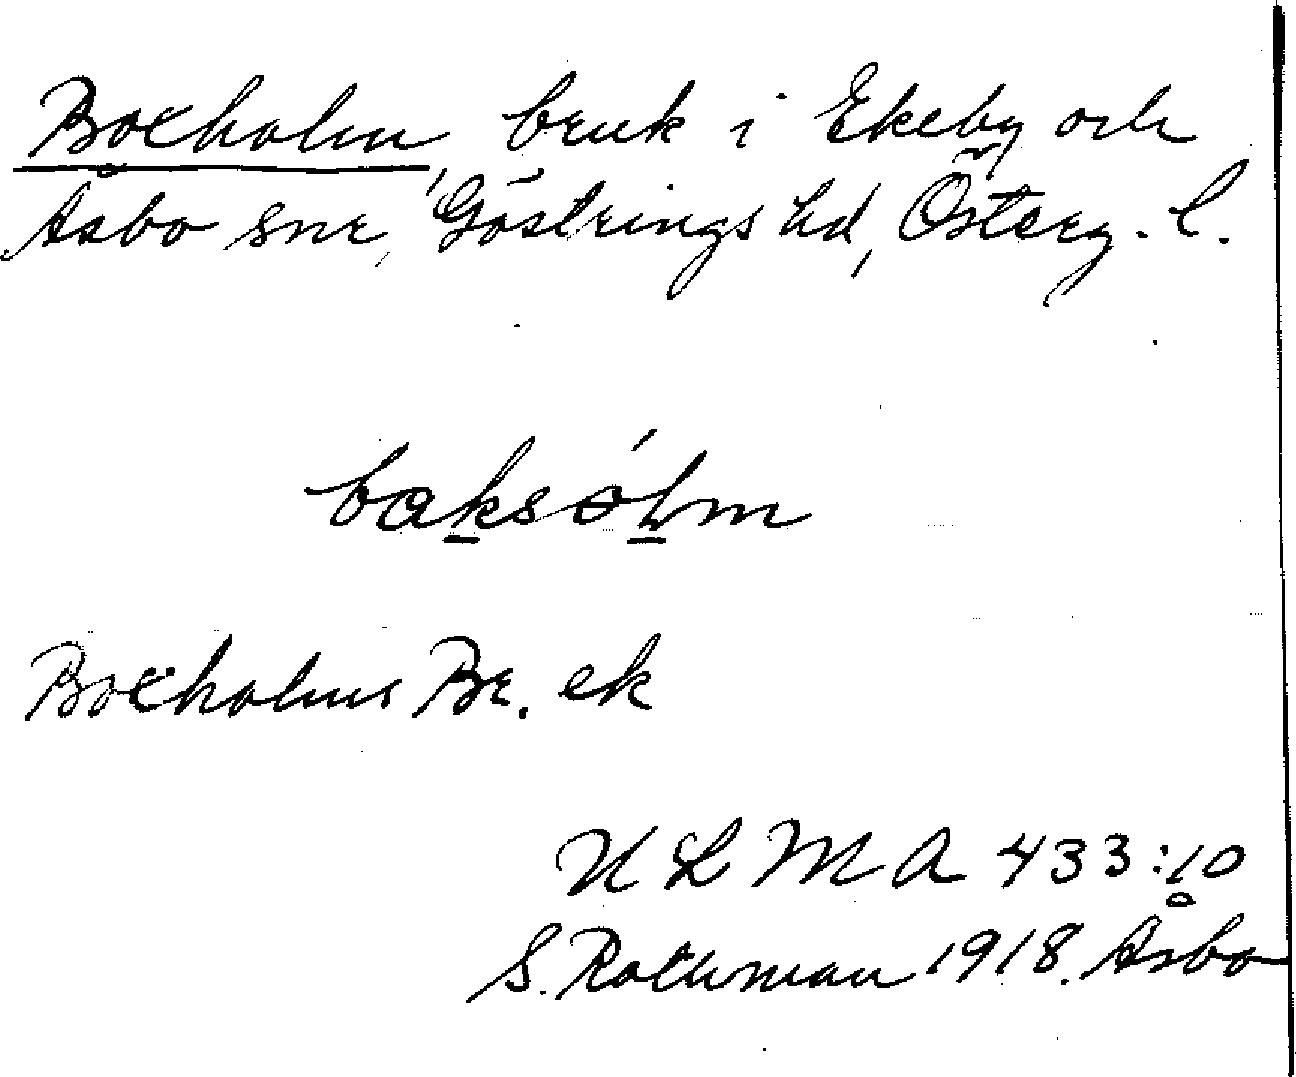 Boxholm, bruk i Ekeby och
Åsbo snr, Göstrings hd, Österg. l.
baksólm
Boxholms Br. ek
ULMA 433:10
S. Rothman 1918. Åsbo